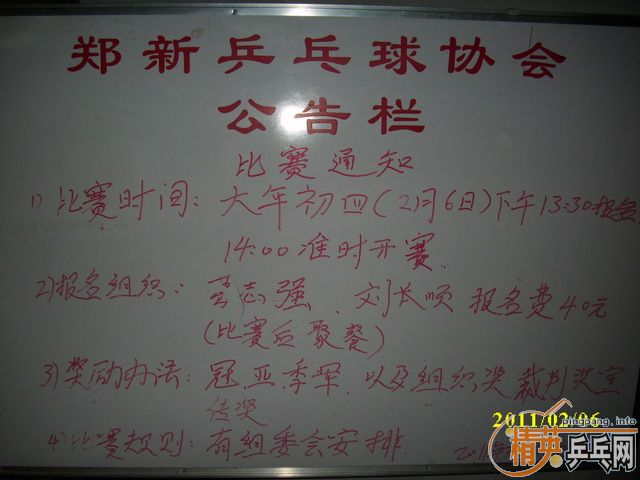 郑新乒乓球协会
公告栏
比赛通知
1)比赛时间：大年初四(2月6日)下午13:30报名
14:00准时开赛.
2)报名组织：志强、刘长顺 报名费40元
(比赛后聚餐)
3)奖励办法：冠亚季军、以及组织奖 裁判奖宣
传奖
4)比赛规则：有组委会安排.
2011/02/06
pingpang.info
精英乒乓网